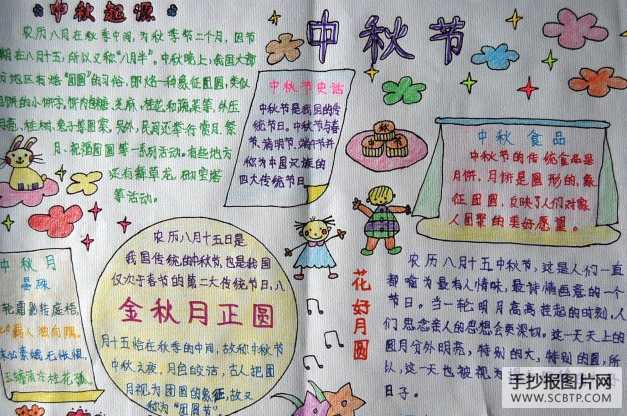 中秋起源
农历八月在秋季中间,为秋季第二个月,因节
期在八月十五,所以又称“八月半”。中秋晚上,我国大部
分地区有烙“团圆”的习俗,即烙一种象征团圆,类似
月饼的小饼子,饼内包糖、芝麻、桂花和蔬菜等,外压
月亮、桂树、兔子等图案。另外,民间还举行赏月、祭
月、祝福团圆等一系列活动。有些地方
还有舞草龙、砌宝塔
等活动。
中秋节
中秋节史话
中秋节是我国的传
统节日。中秋节与春
节、清明节、端午节并
称为中国汉族的
四大传统节日。
中秋食品
中秋节的传统食品是
月饼,月饼是圆形的,象
征团圆,反映了人们对家
人团聚的美好愿望。
中秋月
晏殊
轮霜影转庭梧,
羁人独向隅。
未必素娥无怅恨,
玉蟾清冷桂花孤。
农历八月十五日是
我国传统的中秋节,也是我国
仅次于春节的第二大传统节日。八
金秋月正圆
月十五恰在秋季的中间,故称中秋节
中秋之夜,月色皎洁,古人把圆
月视为团圆的象征,故又
称为“团圆节”
花好月圆
农历八月十五中秋节,这是人们一直
都喻为最有人情味,最诗情画意的一个
节日。当一轮明月高高挂起的时刻,人
们思念亲人的思想会更深切。这一天天上的
圆月分外明亮,特别的大,特别的圆,所
以,这一天也被视为
日子。
手抄报图片网
WWW.SCBTP.COM